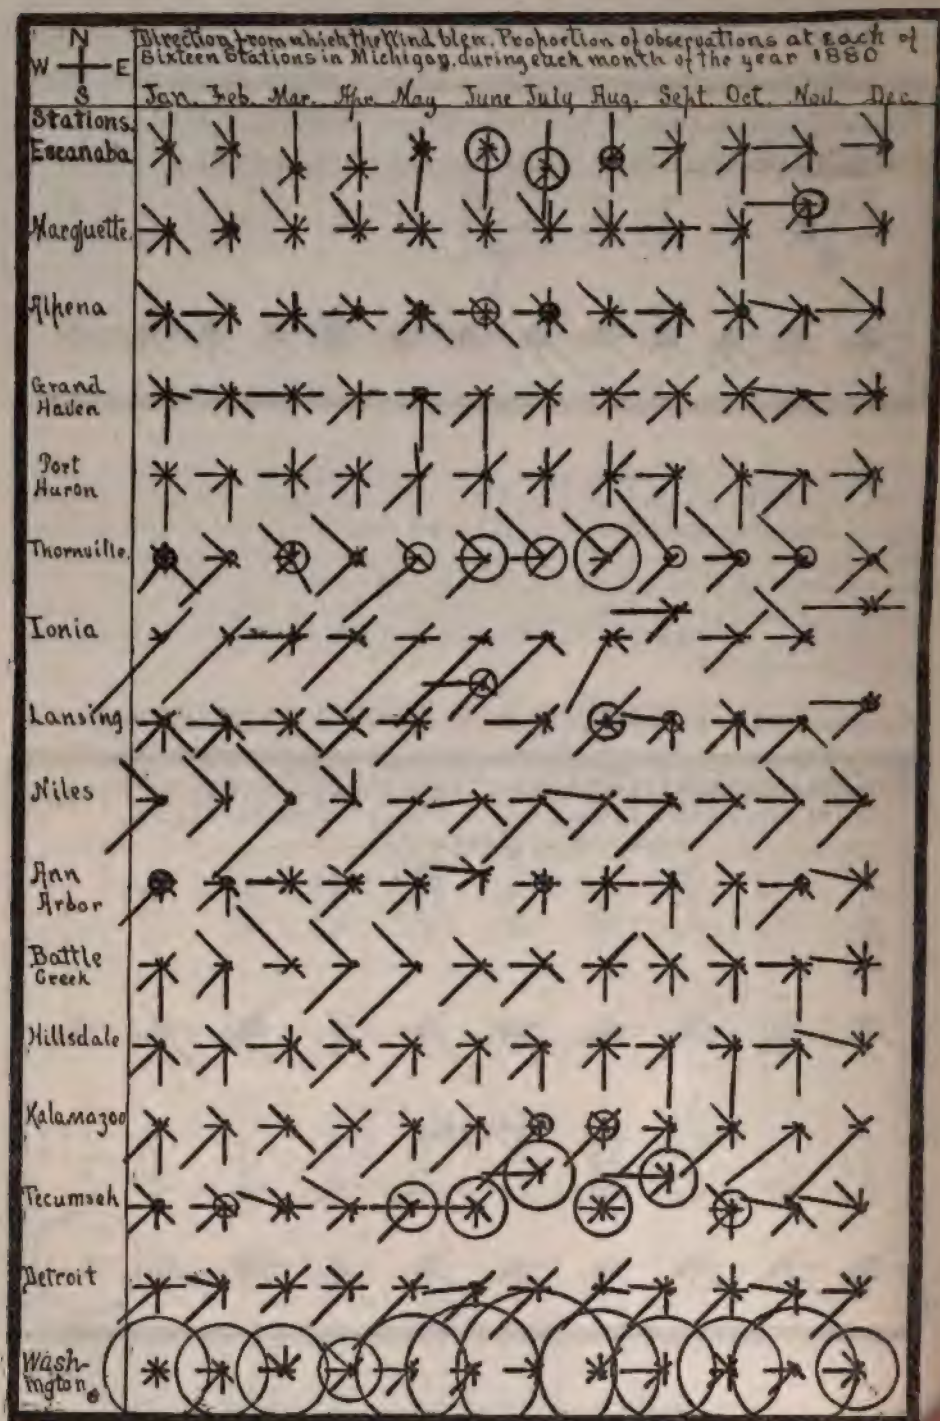 N
W E
S
Direction from which the Wind blew. Proportion of observations at Each of
Sixteen Stations in Michigan, during each month of the year 1880
Jan. Feb. Mar. Apr. May June July Aug. Sept. Oct. Nov. Dec.
Stations.
Escanaba
Marquette.
Alpena
Grand
Haven
Port
Huron
Thornville.
Ionia
Lansing
Niles
Ann
Arbor
Battle
Creek
Hillsdale
Kalamazoo
Tecumseh
Detroit
Wash-
ington.